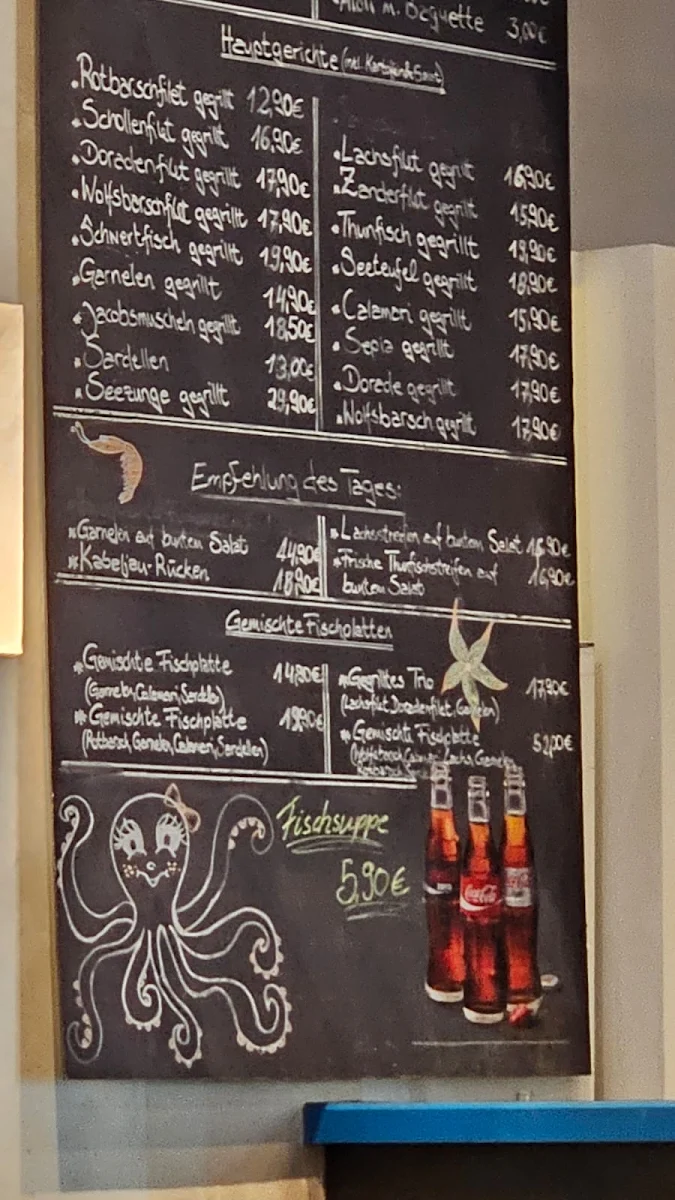 Aioli m. Baguette 3,00€
Hauptgerichte (inkl. Kartoffeln & Salat)
Rotbarschfilet gegrillt 12,90€
Schollenfilet gegrillt 16,90€
Doradenfilet gegrillt 17,90€
Wolfsbarschfilet gegrillt 17,90€
Schwertfisch gegrillt 19,90€
Garnelen gegrillt 14,90€
Jacobsmuscheln gegrillt 18,50€
Sardellen 13,00€
Seezunge gegrillt 29,90€
Lachsfilet gegrillt 16,90€
Zanderfilet gegrillt 15,90€
Thunfisch gegrillt 19,90€
Seeteufel gegrillt 18,90€
Calamari gegrillt 15,90€
Sepia gegrillt 17,90€
Dorade gegrillt 17,90€
Wolfsbarsch gegrillt 17,90€
Empfehlung des Tages:
Garnelen auf buntem Salat 14,90€
Kabeljau-Rücken 18,90€
Lachsstreifen auf buntem Salat 16,90€
Frische Thunfischstreifen auf 16,90€
buntem Salat
Gemischte Fischplatten
Gemischte Fischplatte 14,90€
(Garnelen, Calamari, Sardellen)
Gemischte Fischplatte 19,90€
(Rotbarsch, Garnelen, Calamari, Sardellen)
Gegrilltes Trio 17,90€
(Lachsfilet, Doradenfilet, Garnelen)
Gemischte Fischplatte 52,00€
(Wolfsbarsch, Calamari, Lachs, Garnelen,
Rotbarsch
Fischsuppe
5,90€
Coca-Cola